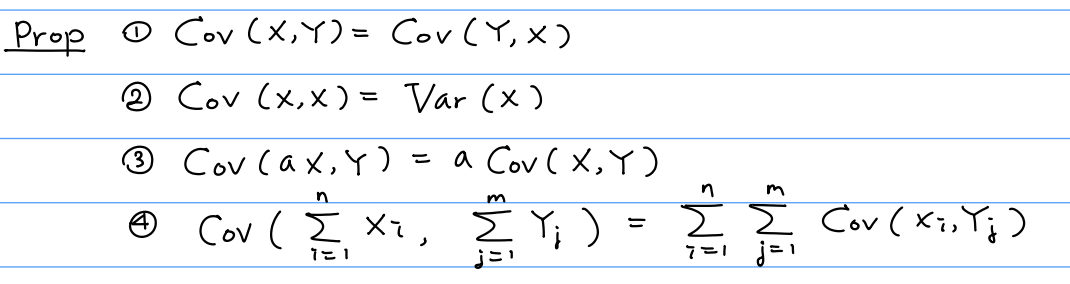 Prop ① Cov (X,Y) = Cov (Y,X)
② Cov (X,X) = Var (X)
③ Cov (aX,Y) = a Cov (X,Y)
④ Cov ( \sum_{i=1}^{n} X_i , \sum_{j=1}^{m} Y_j ) = \sum_{i=1}^{n} \sum_{j=1}^{m} Cov (X_i,Y_j)